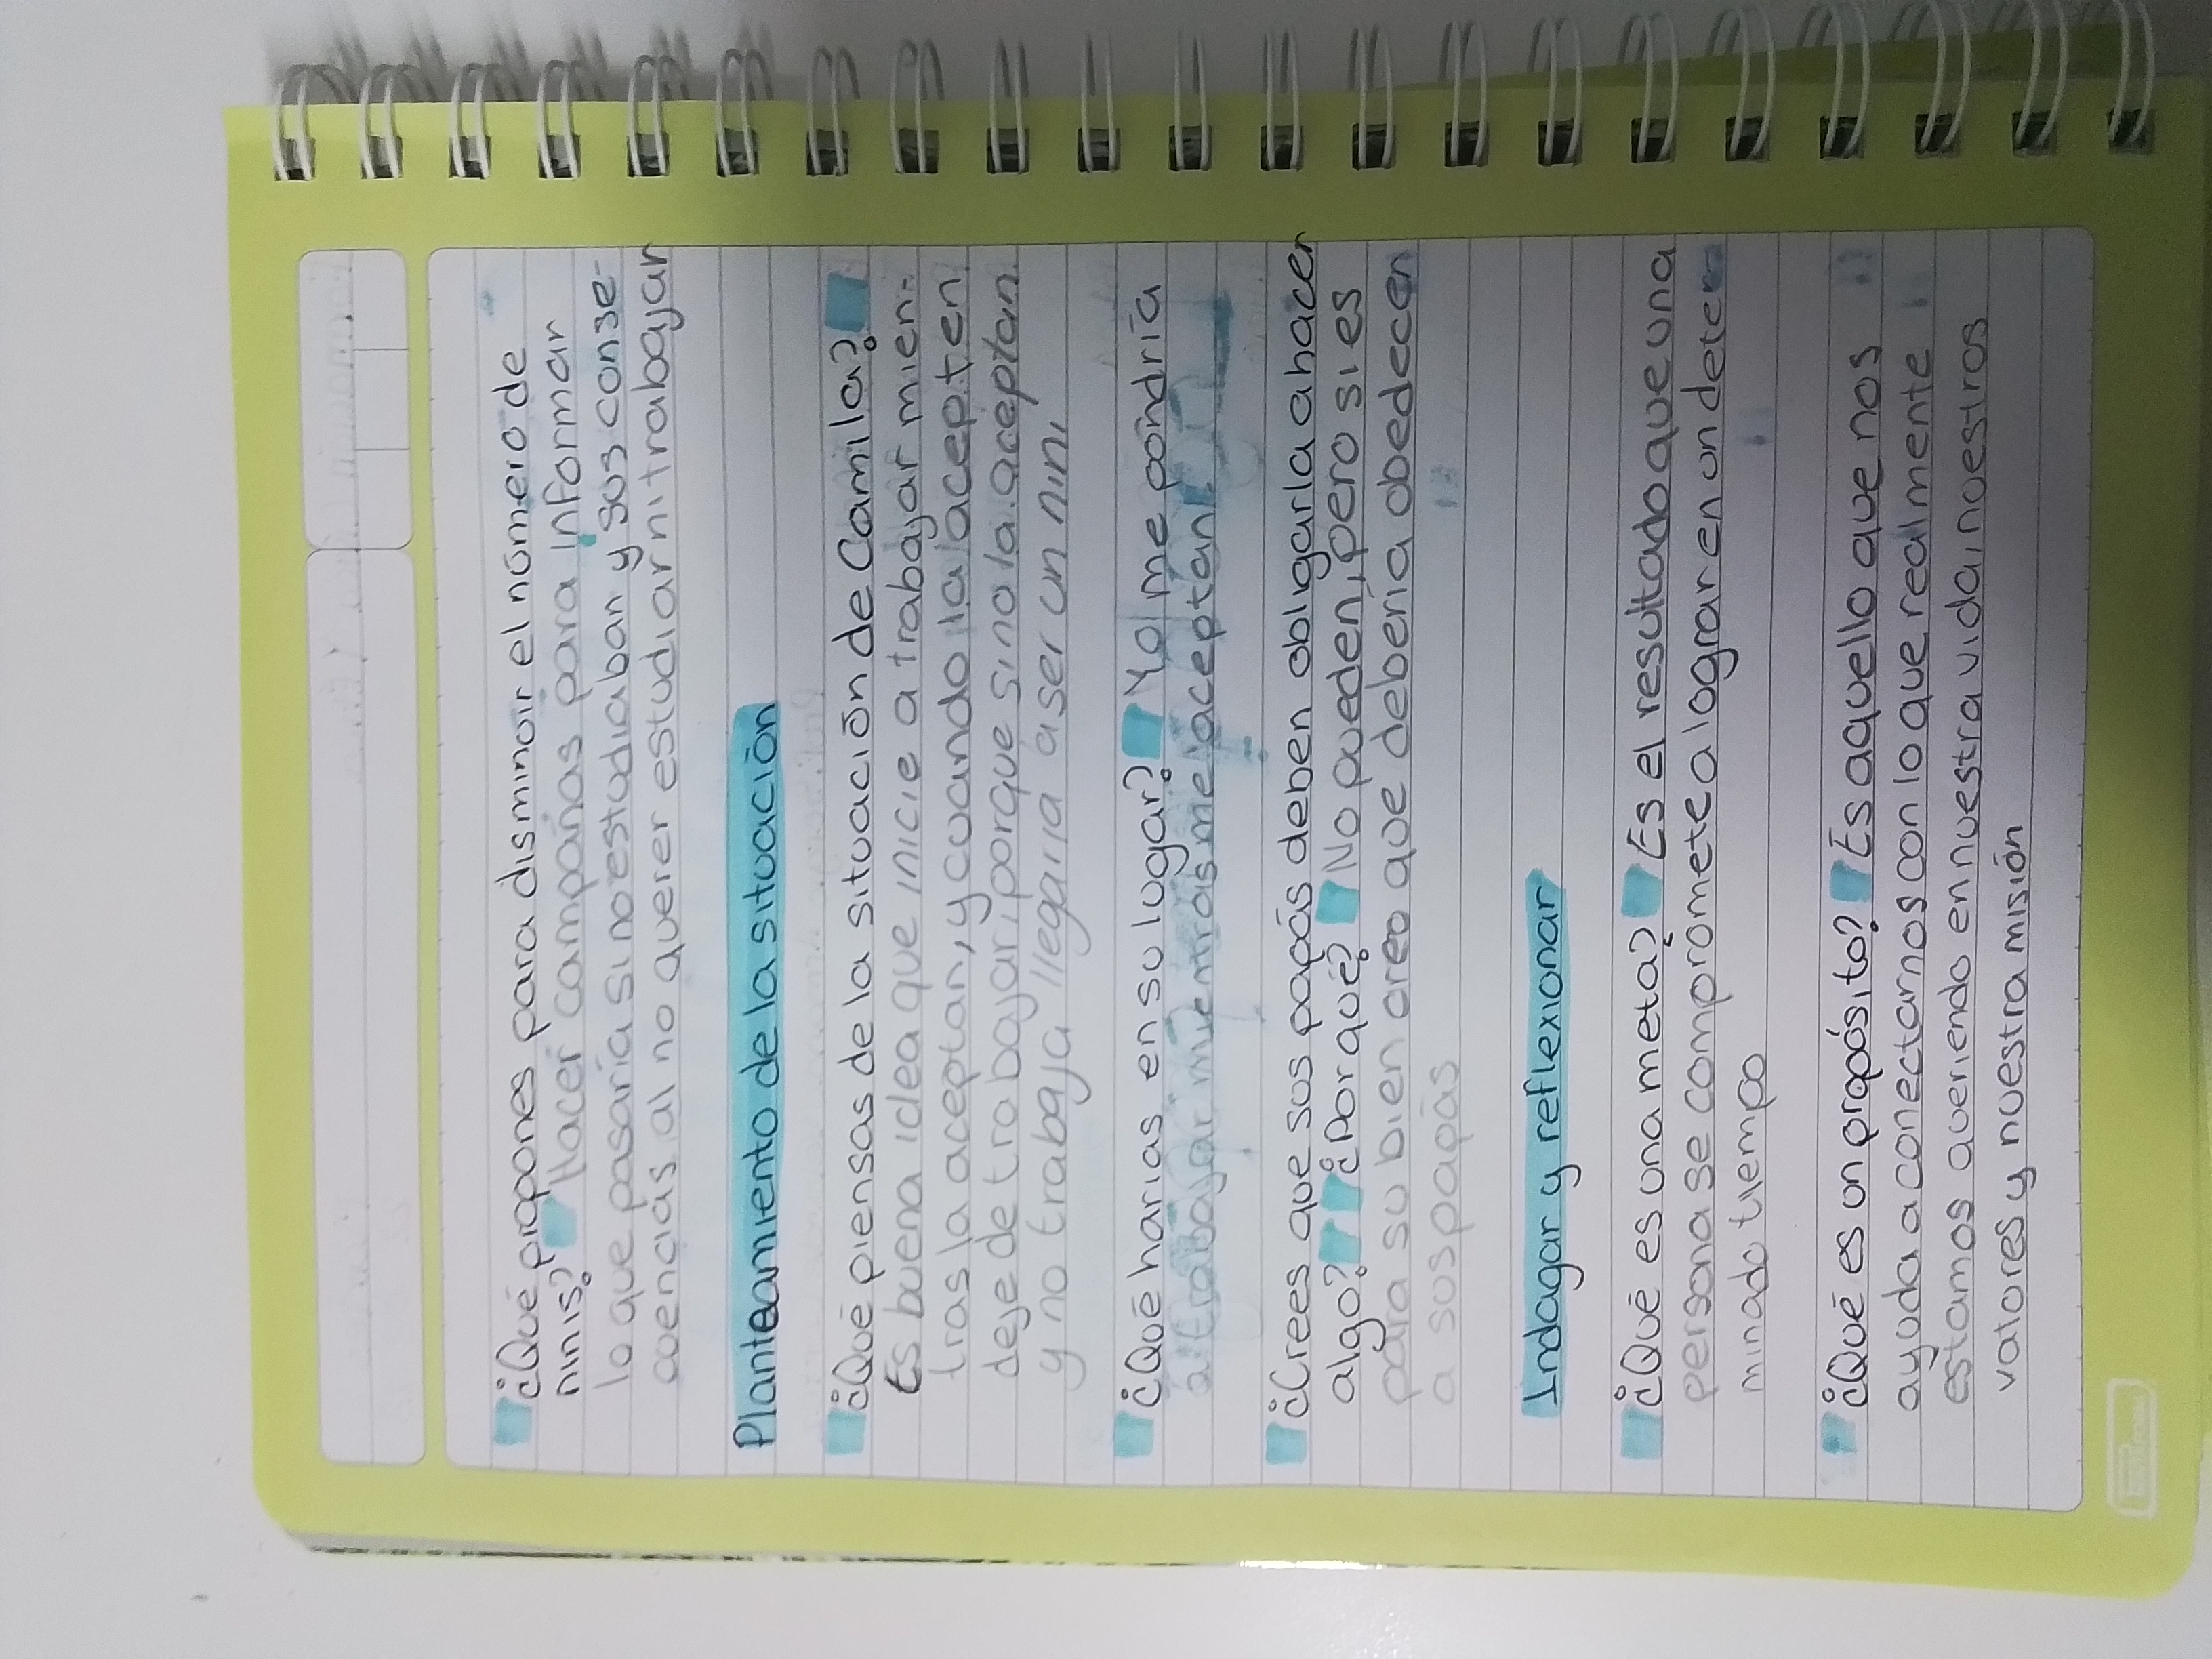 ¿Qué propones para disminuir el número de
ninis? Hacer campañas para informar
lo que pasaría si no estudiaban y sus conse-
cuencias al no querer estudiar ni trabajar
Planteamiento de la situación
¿Qué piensas de la situación de Camila?
Es buena idea que inicie a trabajar mien-
tras la aceptan, y cuando la acepten
deje de trabajar, porque si no la aceptan
y no trabaja llegaría a ser un nini
¿Qué harias en su lugar? Yo me pondría
a trabajar mientras me aceptan
¿Crees que sus papás deben obligarla a hacer
algo? ¿Por qué? No pueden, pero si es
para su bien creo que debería obedecer
a sus papás
Indagar y reflexionar
¿Qué es una meta? Es el resultado que una
persona se compromete a lograr en un deter
minado tiempo
¿Qué es un propósito? Es aquello que nos
ayuda a conectarnos con lo que realmente
estamos queriendo en nuestra vida, nuestros
valores y nuestra misión